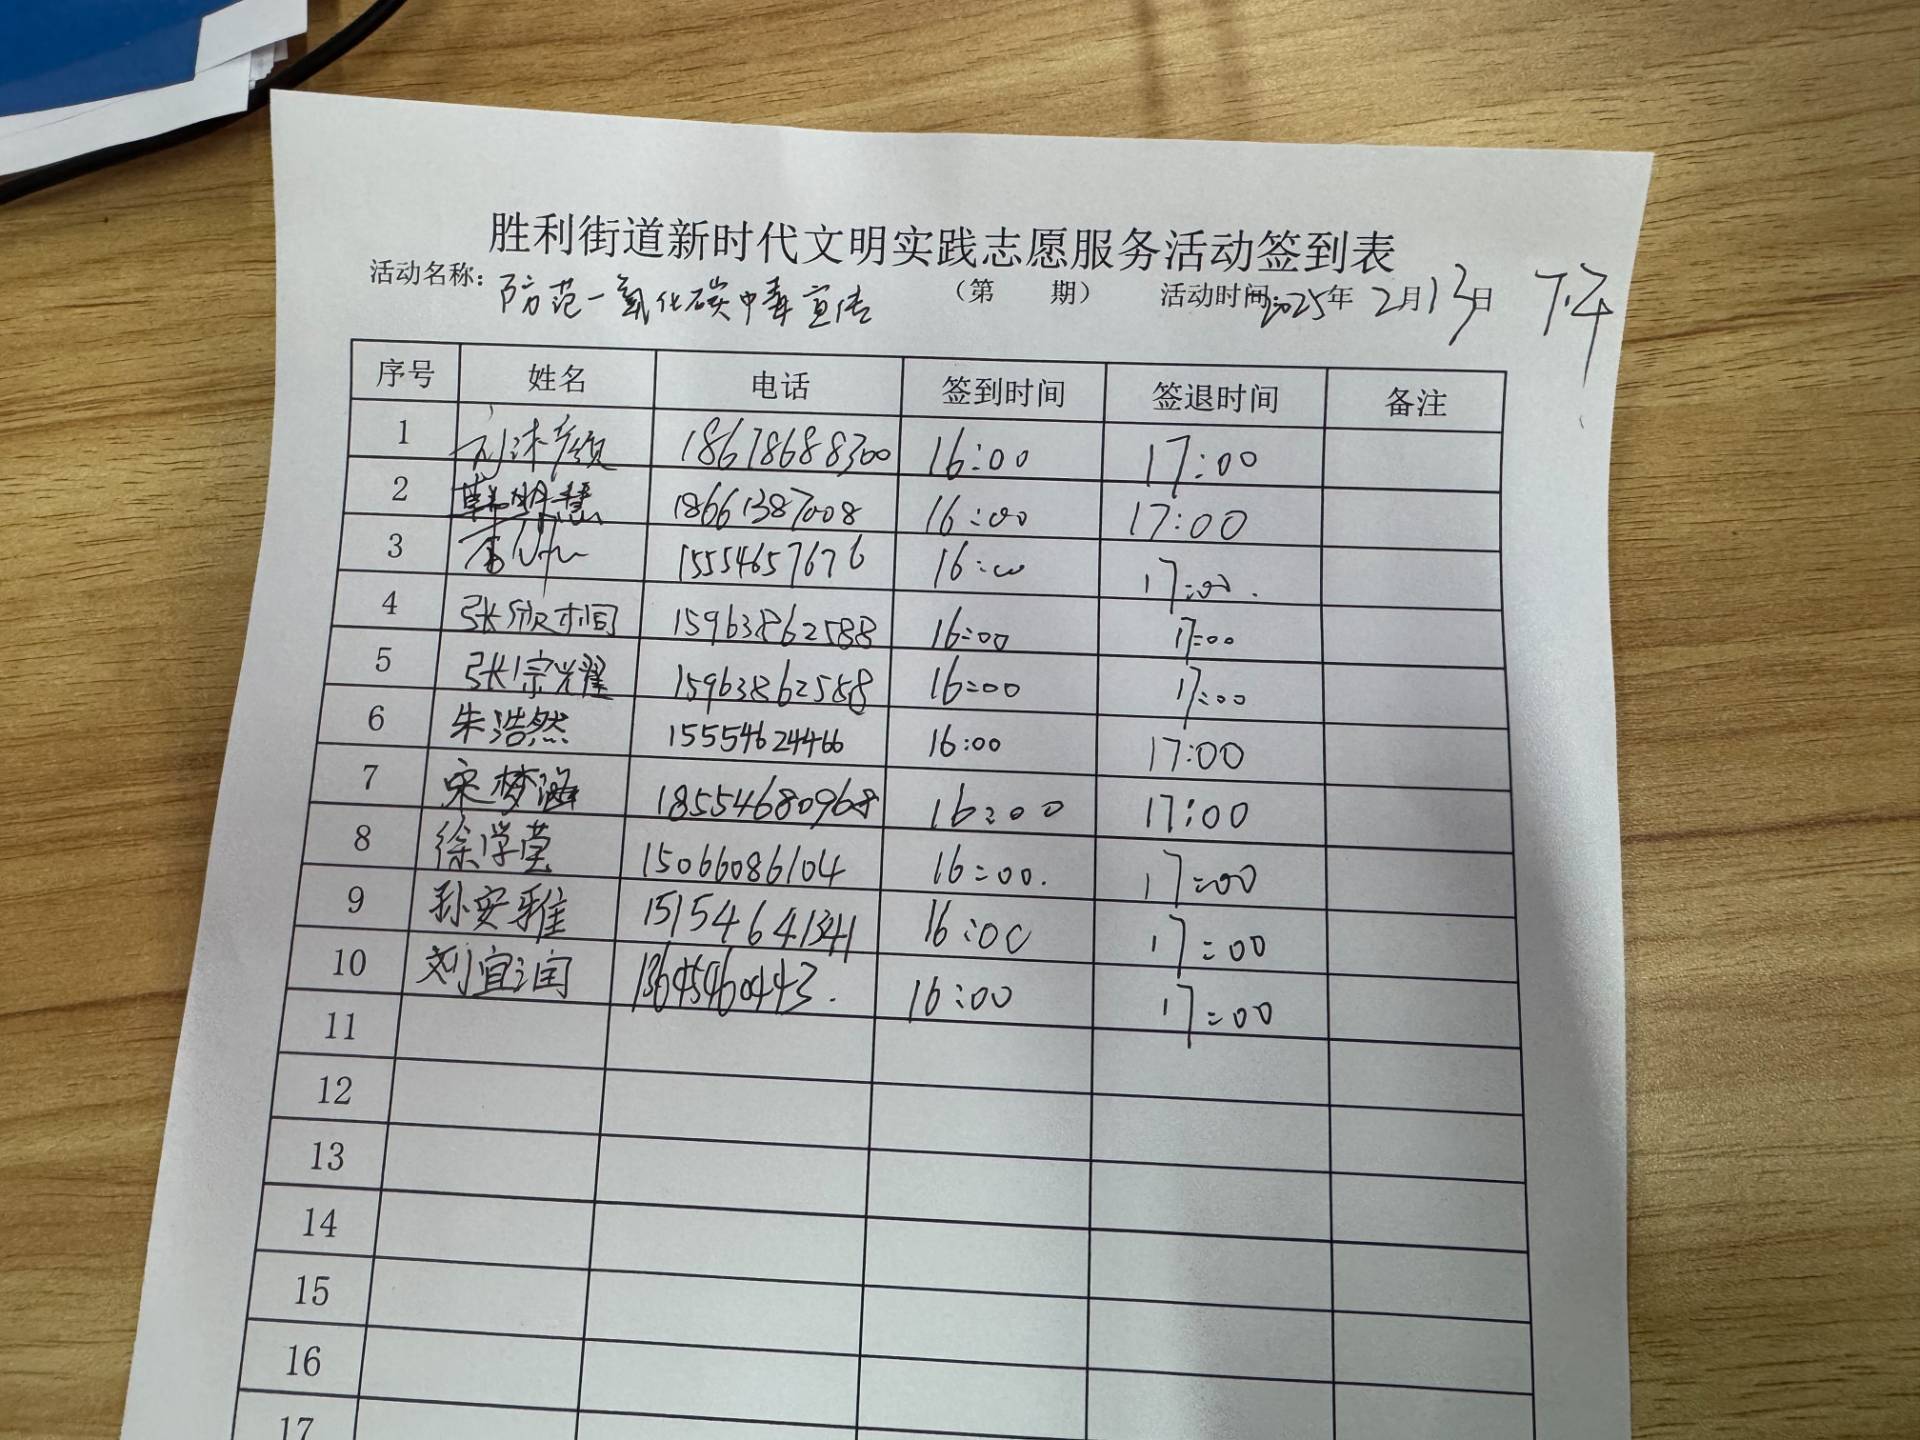 胜利街道新时代文明实践志愿服务活动签到表
活动名称：防范一氧化碳中毒宣传 （第 期） 活动时间：2025年2月13日 下午
序号 姓名 电话 签到时间 签退时间 备注
1 18678688300 16:00 17:00
2 韩明慧 18661387008 16:00 17:00
3 15554657676 16:00 17:00.
4 张欣桐 15963862588 16:00 17:00
5 张宗耀 15963862588 16:00 17:00
6 朱浩然 15554624466 16:00 17:00
7 宋梦涵 18554680968 16:00 17:00
8 徐学莹 15066086104 16:00. 17:00
9 孙安雅 15154641341 16:00 17:00
10 刘宜润 13645460443. 16:00 17:00
11
12
13
14
15
16
17